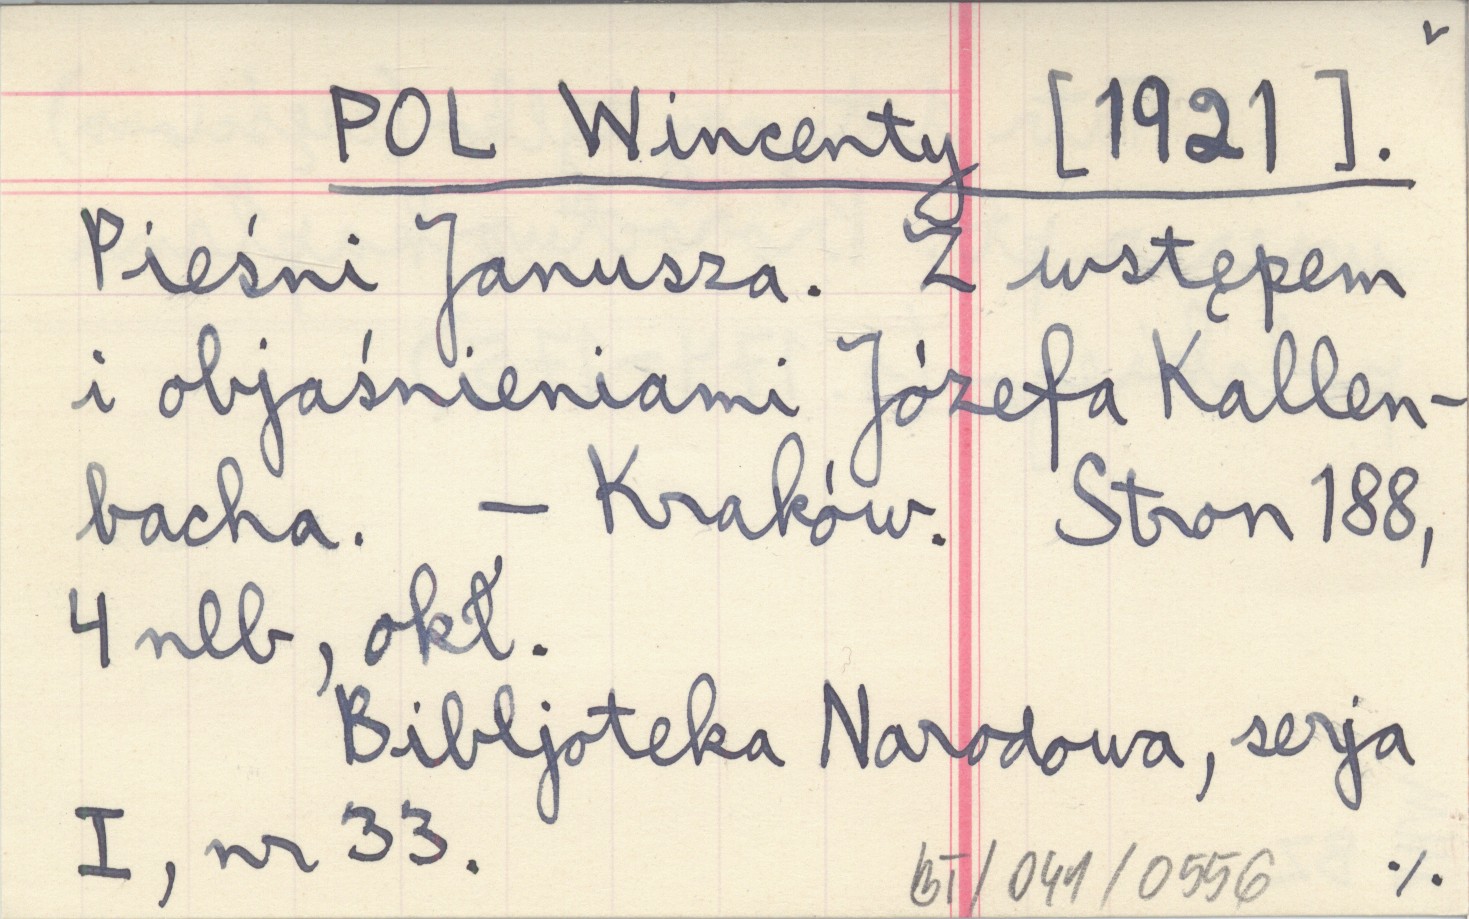 POL Wincenty [1921].
Pieśni Janusza. Z wstępem
i objaśnieniami Józefa Kallen-
bacha. — Kraków. Stron 188,
4 nlb, okł.
Bibljoteka Narodowa, serja
I, nr 33.
BI/041/0556 ./.